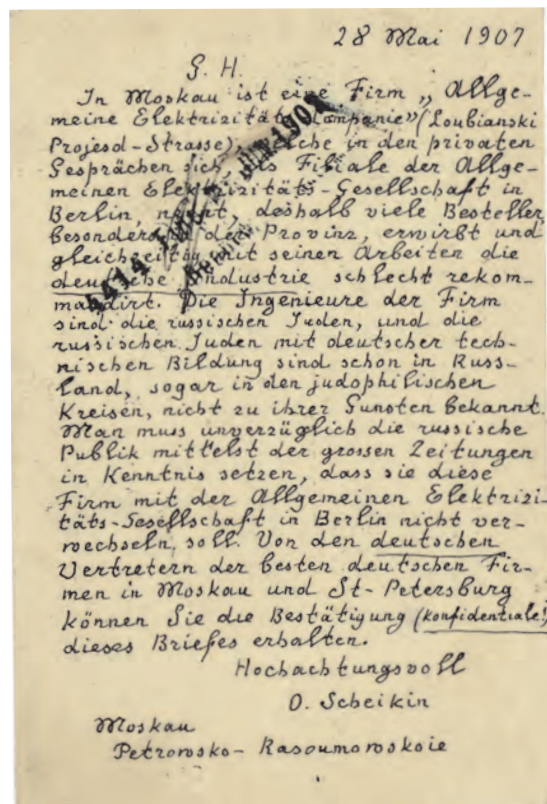 28 Mai 1907
G. H.
In Moskau ist eine Firm „Allge-
meine Elektrizitäts Compagnie" (Loubianski
Projesd-Strasse), welche in den privaten
Gesprächen sich, als Filiale der Allge-
meinen Elektrizitäts-Gesellschaft in
Berlin, nennt, deshalb viele Besteller,
besonders in der Provinz, erwirbt und
gleichzeitig mit seinen Arbeiten die
deutsche Industrie schlecht rekom-
mandirt. Die Ingenieure der Firm
sind die russischen Juden, und die
russischen Juden mit deutscher tech-
nischen Bildung sind schon in Russ-
land, sogar in den judophilischen
Kreisen, nicht zu ihrer Gunsten bekannt.
Man muss unverzüglich die russische
Publik mittelst der grossen Zeitungen
in Kenntnis setzen, dass sie diese
Firm mit der Allgemeinen Elektrizi-
täts-Gesellschaft in Berlin nicht ver-
wechseln soll. Von den deutschen
Vertretern der besten deutschen Fir-
men in Moskau und St-Petersburg
können Sie die Bestätigung (konfidentiale!)
dieses Briefes erhalten.
Hochachtungsvoll
O. Scheikin
Moskau
Petrowsko-Rasoumowskoie